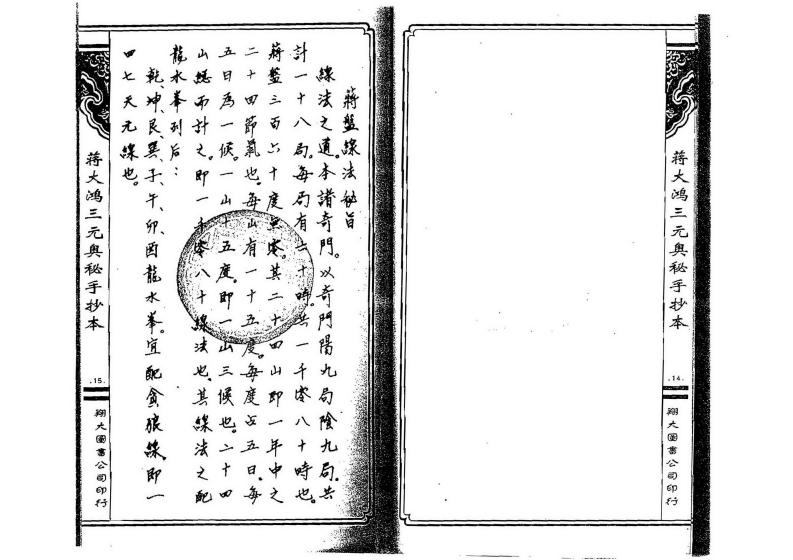 蔣大鴻三元奧秘手抄本
.14.
翔大圖書公司印行
蔣盤線法秘旨
線法之道。本諸奇門。以奇門陽九局陰九局。共
計一十八局。每局有六十時。共一千零八十時也。
蔣盤三百六十度無零。其二十四山即一年中之
二十四節氣也。每山有一十五度。每度占五日。每
五日為一候。一山十五度。即一山三候也。二十四
山總而計之。即一千零八十線法也。其線法之配
龍水峯列后：
乾、坤、艮、巽、子、午、卯、酉龍水峯。宜配貪狼線。即一
四七天元線也。
蔣大鴻三元奧秘手抄本
.15.
翔大圖書公司印行